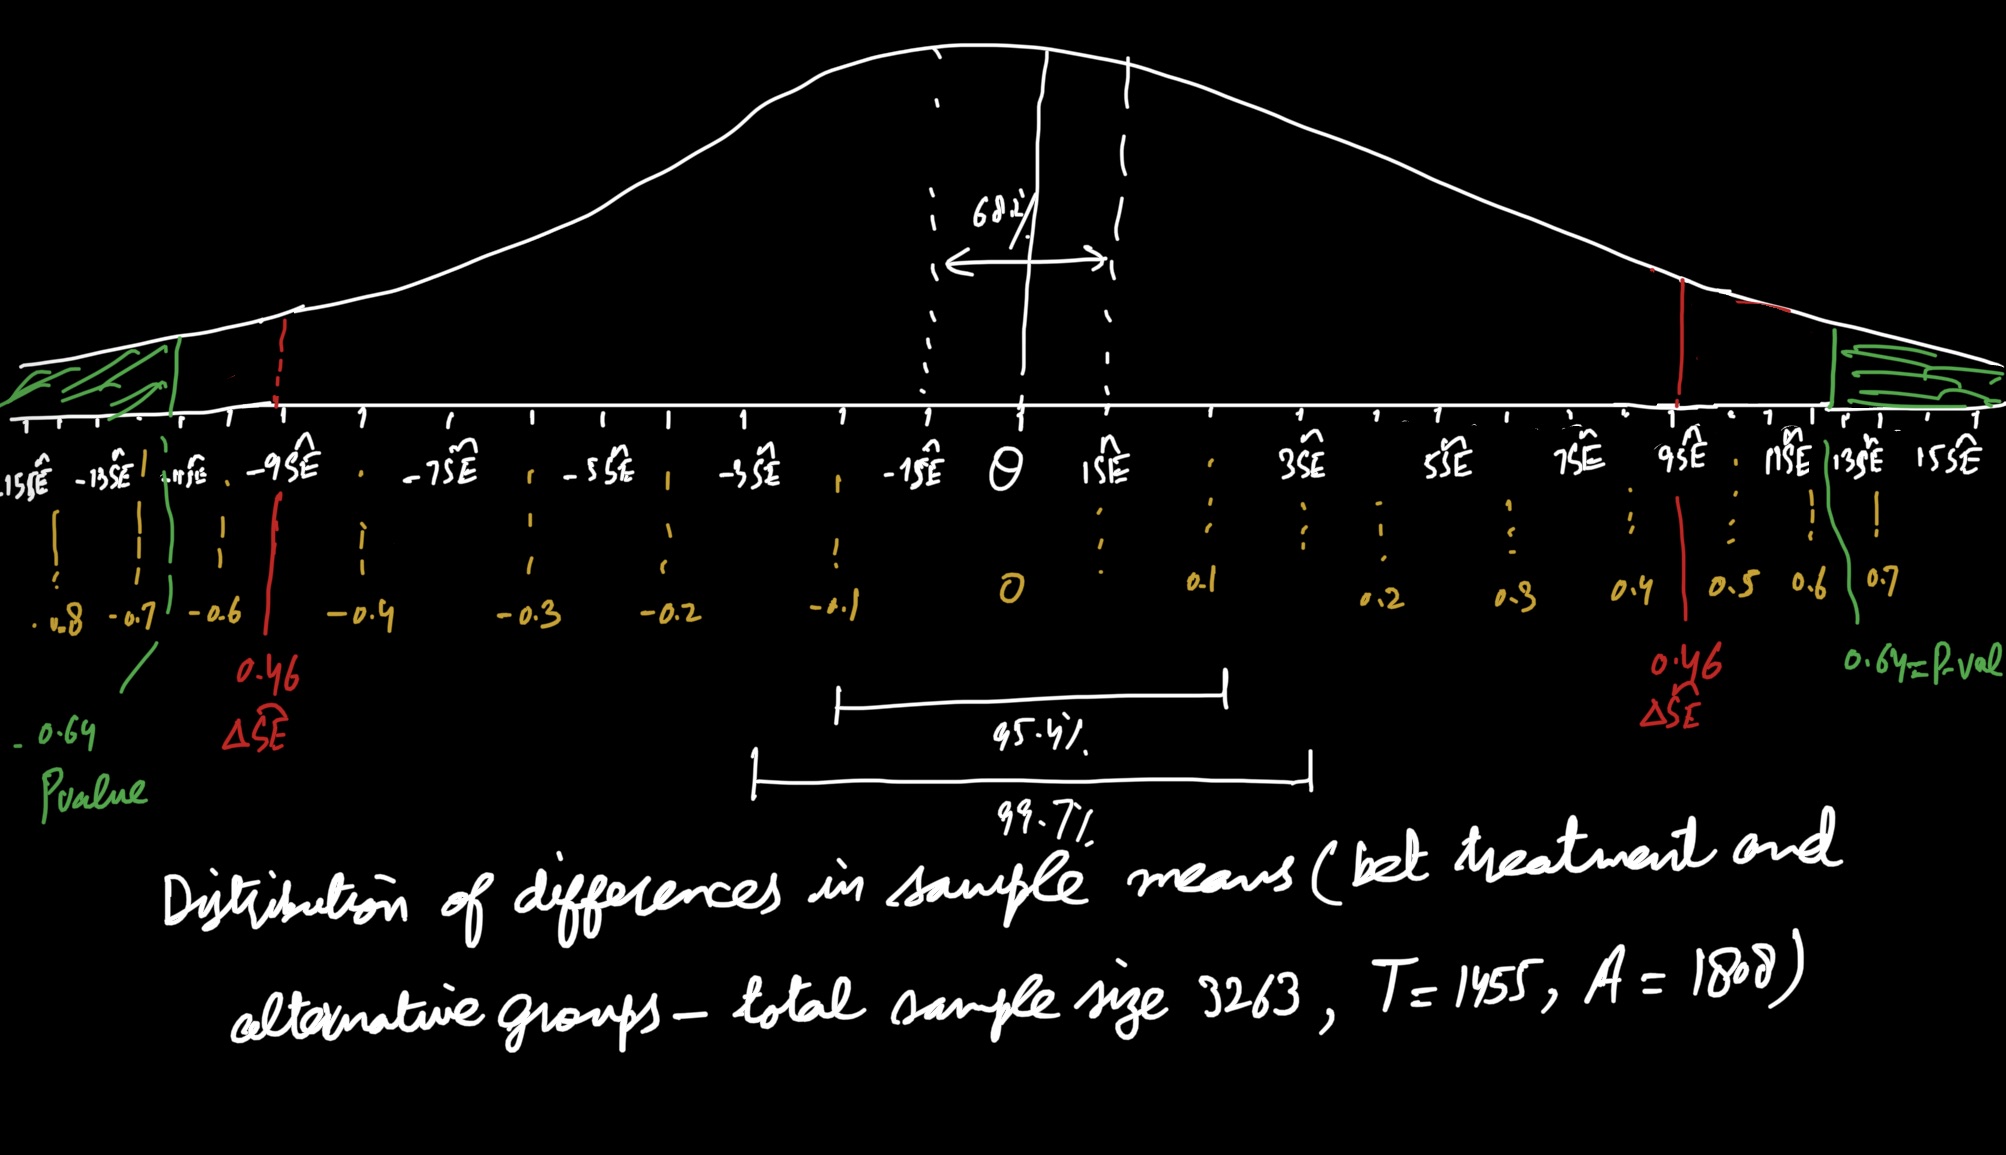 68%
-15SE -13SE -11SE -9SE -7SE -5SE -3SE -1SE 0 1SE 3SE 5SE 7SE 9SE 11SE 13SE 15SE
-0.8 -0.7 -0.6 -0.4 -0.3 -0.2 -0.1 0 0.1 0.2 0.3 0.4 0.5 0.6 0.7
0.46
ΔSE
0.46
ΔSE
0.64=P-val
- 0.64
Pvalue
95.4%
99.7%
Distribution of differences in sample means (bet treatment and
alternative groups - total sample size 3263, T=1455, A = 1808)